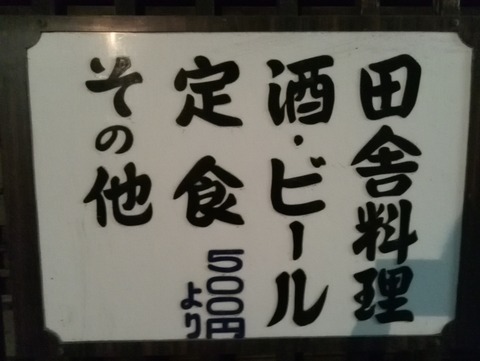 田舎料理
酒・ビール
定食
500円
より
その他